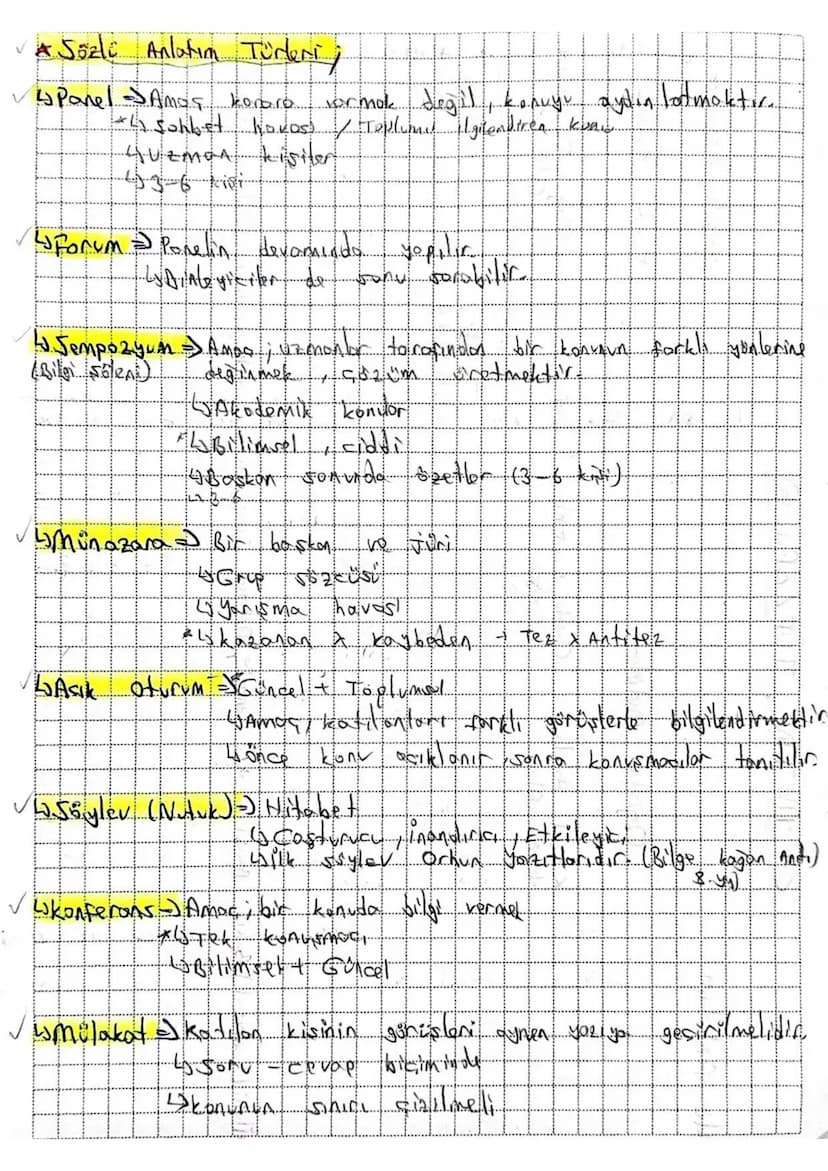 * Sözlü Anlatım Türleri;
↳ Panel ⇒ Amaç karara varmak değil, konuyu aydınlatmaktır.
*↳ Sohbet havası / Toplumu ilgilendiren konu
↳ Uzman kişiler
↳ 3-6 kişi
↳ Forum ⇒ Panelin devamında yapılır.
↳ Dinleyiciler de soru sorabilir.
↳ Sempozyum ⇒ Amaç; uzmanlar tarafından bir konunun farklı yönlerine
(Bilgi şöleni) değinmek, çözüm üretmektir.
↳ Akademik konular
*↳ Bilimsel, ciddi
↳ Başkan sonunda özetler (3-6 kişi)
↳ 3-6
↳ Münazara ⇒ Bir başkan ve jüri
↳ Grup sözcüsü
↳ Yarışma havası
*↳ Kazanan x kaybeden → Tez x Antitez
↳ Açık oturum ⇒ Güncel + Toplumsal
↳ Amaç, katılanları farklı görüşlerle bilgilendirmektir
↳ Önce konu açıklanır, sonra konuşmacılar tanıtılır.
↳ Söylev (Nutuk) ⇒ Hitabet
↳ Coşturucu, inandırıcı, Etkileyici
↳ İlk söylev Orhun Yazıtlarıdır. (Bilge kağan Anıtı)
8. yy)
↳ Konferans ⇒ Amaç; bir konuda bilgi vermek
*↳ Tek konuşmacı
↳ Bilimsel + Güncel
↳ Mülakat ⇒ Katılan kişinin görüşleri aynen yazıya geçirilmelidir.
↳ Soru - cevap biçiminde
↳ Konunun sınırı çizilmeli